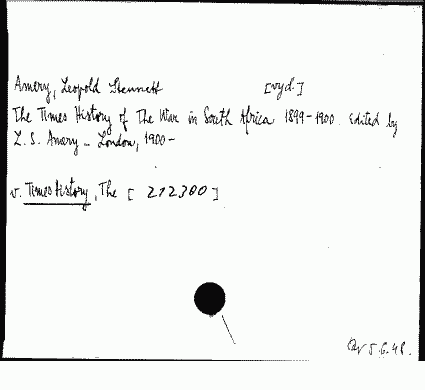 Amery, Leopold Stennett [vyd.]
The Times History of The War in South Africa 1899-1900. Edited by
L. S. Amery - London, 1900-
v. Times History, The [ 212380 ]
5.6.48.